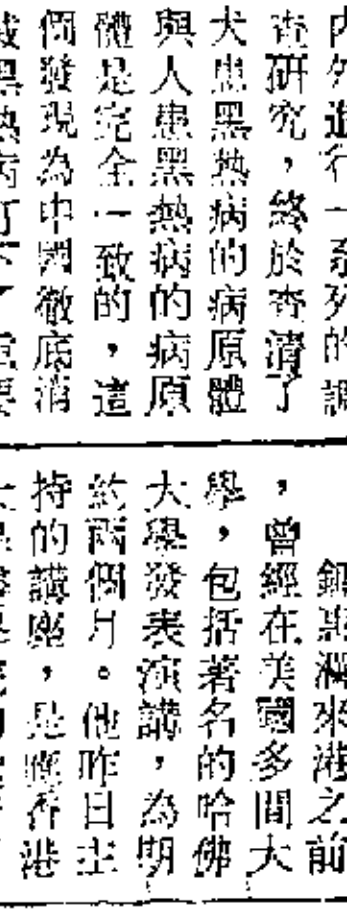 內外進行一系列的調
查研究，終於查清了
犬患黑熱病的病原體
與人患黑熱病的病原
體是完全一致的，這
個發現為中國徹底消
滅黑熱病打下了重要
鍾惠瀾來港之前
，曾經在美國多間大
學，包括著名的哈佛
大學發表演講，為期
約兩個月。他昨日主
持的講座，是應香港